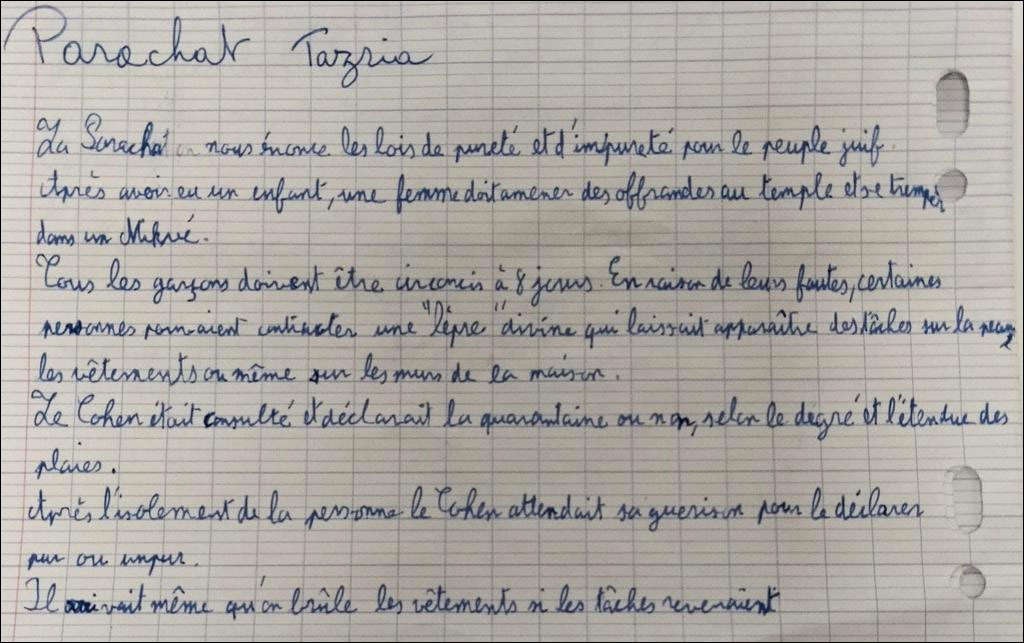 Parachat Tazria
La Parachat nous énonce les lois de pureté et d'impureté pour le peuple juif.
Après avoir eu un enfant, une femme doit amener des offrandes au temple et se tremper
dans un Mikvé.
Tous les garçons doivent être circoncis à 8 jours. En raison de leurs fautes, certaines
personnes pouvaient contracter une "lèpre" divine qui laissait apparaître des tâches sur la peau,
les vêtements ou même sur les murs de la maison.
Le Cohen était consulté et déclarait la quarantaine ou non, selon le dégré et l'étendue des
plaies.
Après l'isolement de la personne le Cohen attendait sa guerison pour le déclarer
pur ou impur.
Il arrivait même qu'on brûle les vêtements si les tâches revenaient